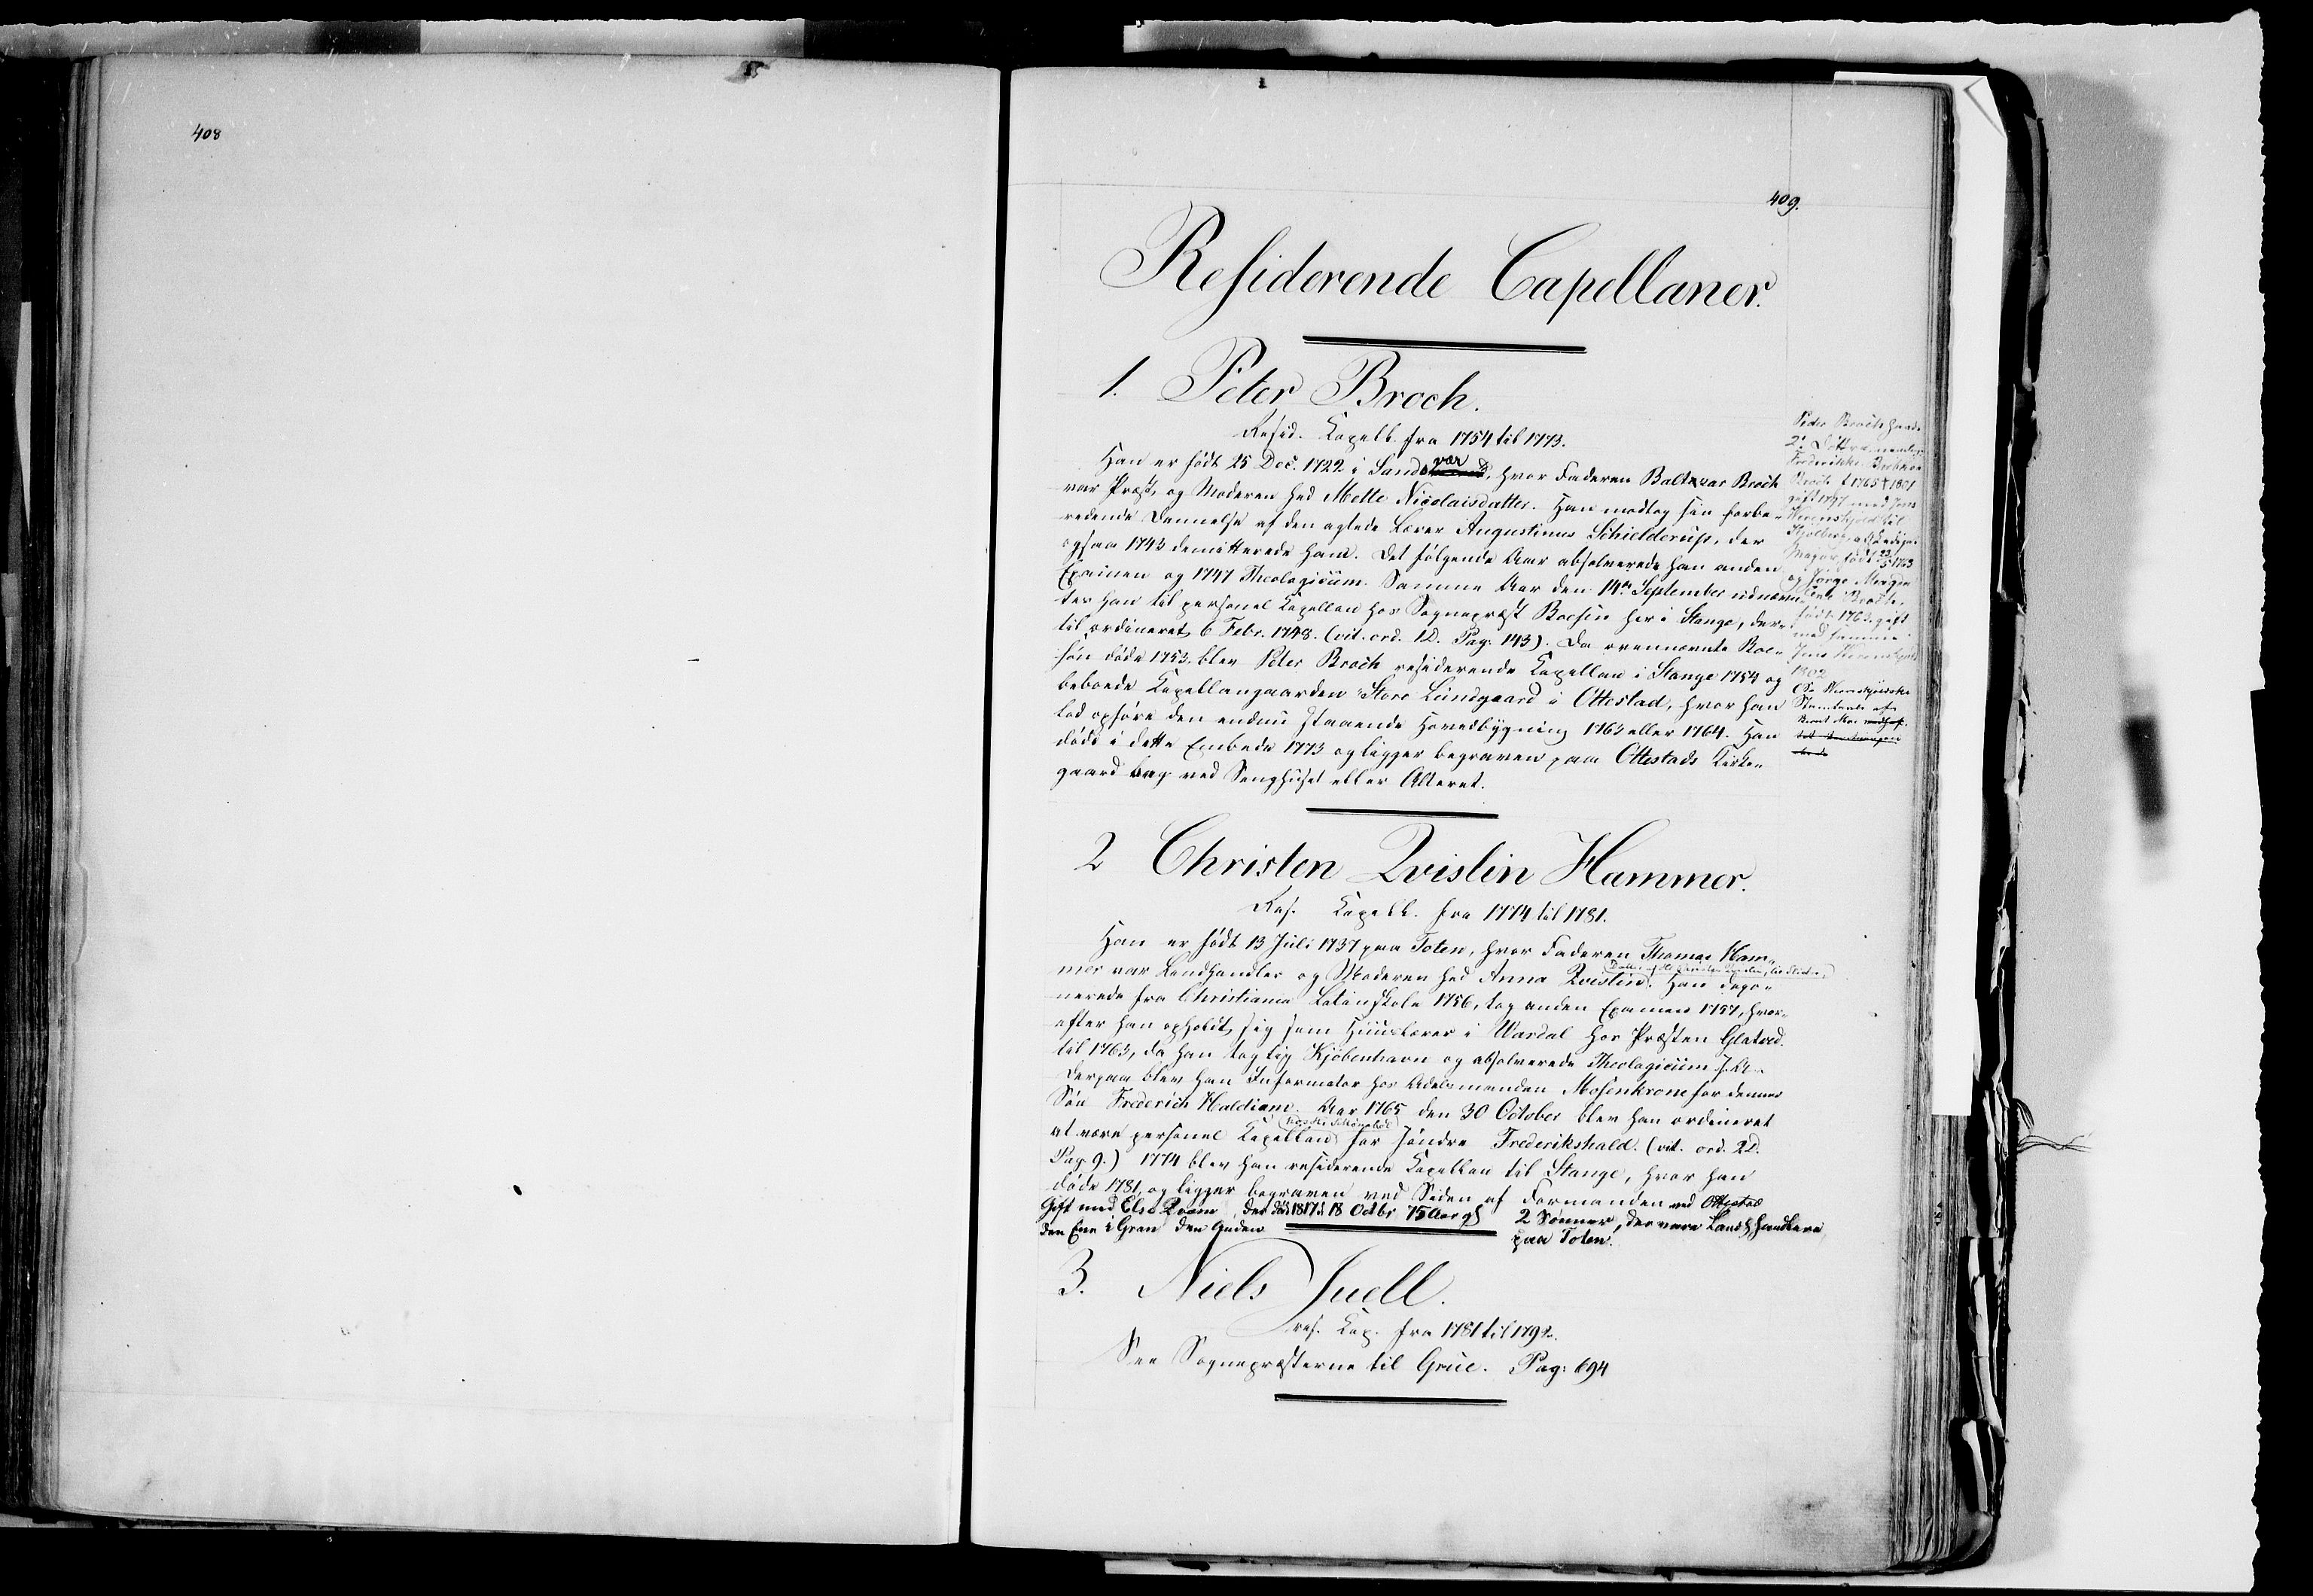 408
409.
Residerende Capellaner.
1. Peter Broch.
Resid. Kapell. fra 1754 til 1773.
Han er født 25 Dec. 1722 i Sandsvær, hvor Faderen Baltzar Broch
var Præst, og Moderen hed Mette Nicolaisdatter. Han modtog sin forbe-
redende Dannelse af den agtede Lærer Augustinus Schielderup, der
ogsaa 1743 demitterede ham. Det følgende Aar absolverede han anden
Examen og 1747 Theologicum. Samme Aar den 14de September udnævn-
tes han til personel Kapellan hos Sognepræst Boesen her i Stange, der-
til ordineret 6 Febr. 1748. (vit. ord. 1D. Pag. 143). Da ovennævnte Boe-
sen døde 1753, blev Peter Broch residerende Kapellan i Stange 1754 og
beboede Kapellangaarden Store Lundgaard i Ottestad, hvor han
lod opføre den endnu staaende Hovedbygning 1763 eller 1764. Han
døde i dette Embede 1773 og ligger begraven paa Ottestads Kirke-
gaard bag ved Sanghuset eller Alteret.
Peder Brochs havde
2 Døttre nemlig
Frederikke
Broch f 1765 † 1801
gift 1797 med Jens
Werenskjold til
Hjølberg, afskediget
Major, født 23/5 1763
og Inger Margre
the Broch,
født 1763. gift
med samme
Jens Werenskjold
1802
(Se Werenskjoldske
Stamtavle af
2 Christen Qvislin Hammer.
Res. Kapell. fra 1774 til 1781.
Han er født 13 Juli 1737 paa Toten, hvor Faderen Thomas Ham-
mer var Landhandler og Moderen hed Anna Qvislin. Han depo-
nerede fra Christiania Latinskole 1756, tog anden Examen 1757, hvor-
efter han opholdt sig som Huuslærer i Wardal hos Præsten Glatved
til 1763, da han tog til Kjøbenhavn og absolverede Theologicum s. A.
Derpaa blev han Informator hos Adelsmanden Mosenkrone for dennes
Søn Frederich Haldiam. Aar 1765 den 30 October blev han ordineret
at være personel Kapellan for Søndre Frederikshald. (vit. ord. 2D.
Pag. 9.) 1774 blev han residerende Kapellan til Stange, hvor han
døde 1781, og ligger begraven ved Siden af Formanden ved Ottestad
Gift med Else Qvam, der død 1817 d 18 Octbr 75 Aar gl 2 Sønner, der vare Landhandlere
den Ene i Gran den Anden paa Toten.
3. Niels Juell.
res. Kap. fra 1781 til 1792.
See Sognepræsterne til Grue. Pag: 694